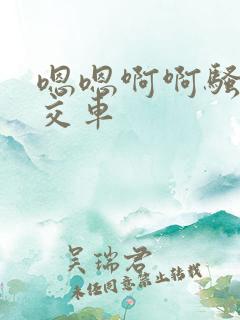 嗯嗯啊啊骚
交车
吴瑞君
未经同意禁止转载